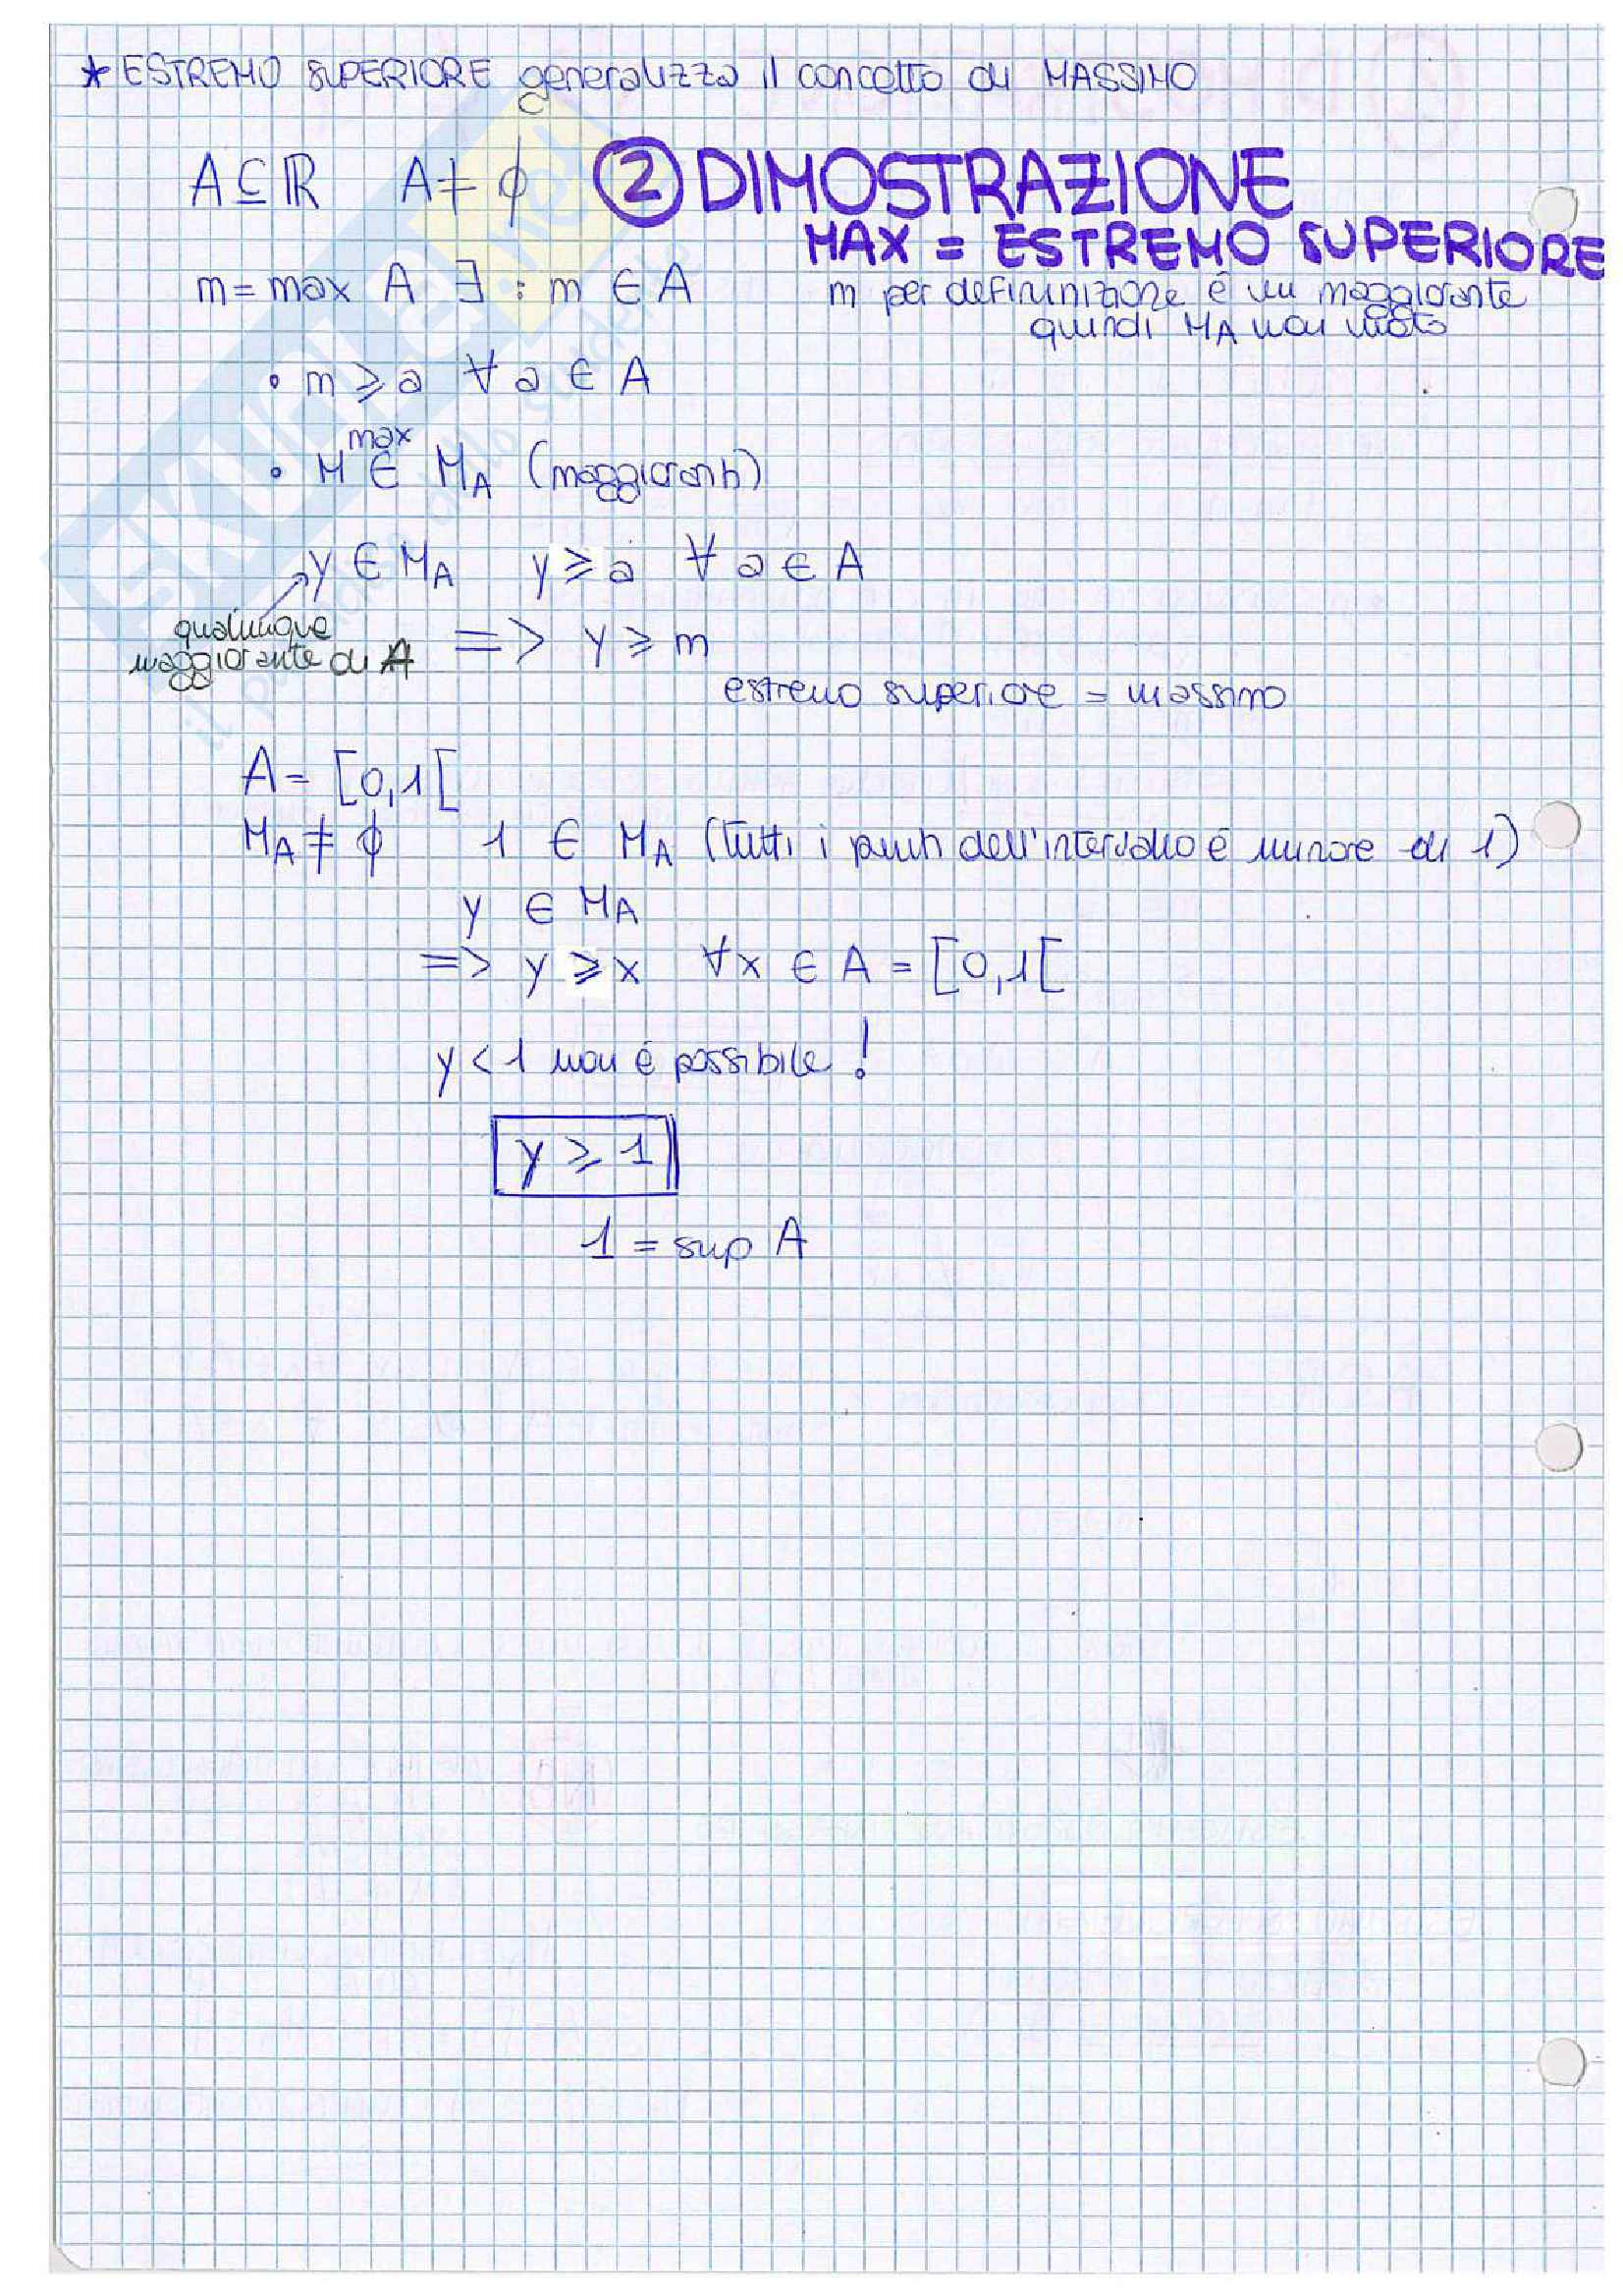 * ESTREMO SUPERIORE generalizza il concetto di MASSIMO
A ⊆ ℝ A ≠ ϕ ② DIMOSTRAZIONE
MAX = ESTREMO SUPERIORE
m = max A ∃ : m ∈ A m per defininizione é un maggiorante
quindi MA non vuoto
• m ⩾ a ∀ a ∈ A
max
• M ∈ MA (maggioranti)
y ∈ MA y ⩾ a ∀ a ∈ A
qualunque
maggiorante di A => y ⩾ m
estremo superiore = massimo
A = [0,1[
MA ≠ ϕ 1 ∈ MA (tutti i punti dell'intervallo é minore di 1)
y ∈ MA
=> y ⩾ x ∀x ∈ A = [0,1[
y < 1 non é possibile!
y ⩾ 1
1 = sup A